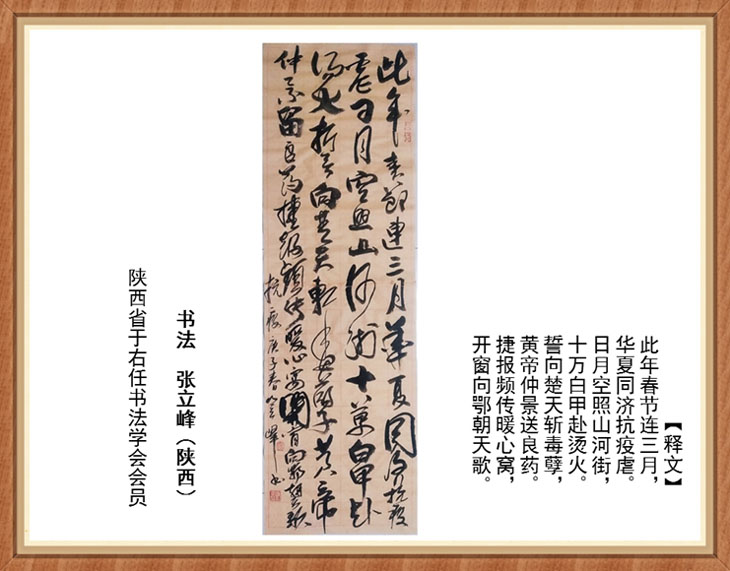 【释文】
此年春节连三月，
华夏同济抗疫虐。
日月空照山河街，
十万白甲赴烫火。
誓向楚天斩毒孽，
黄帝仲景送良药。
捷报频传暖心窝，
开窗向鄂朝天歌。
此年春节连三月华夏同济抗疫
虐日月空照山河街十万白甲赴
火誓向楚天斩毒孽黄帝
仲景留良药捷报频传暖心窝开窗向鄂朝天歌
抗疫庚子春立峰书
书法 张立峰（陕西）
陕西省于右任书法学会会员